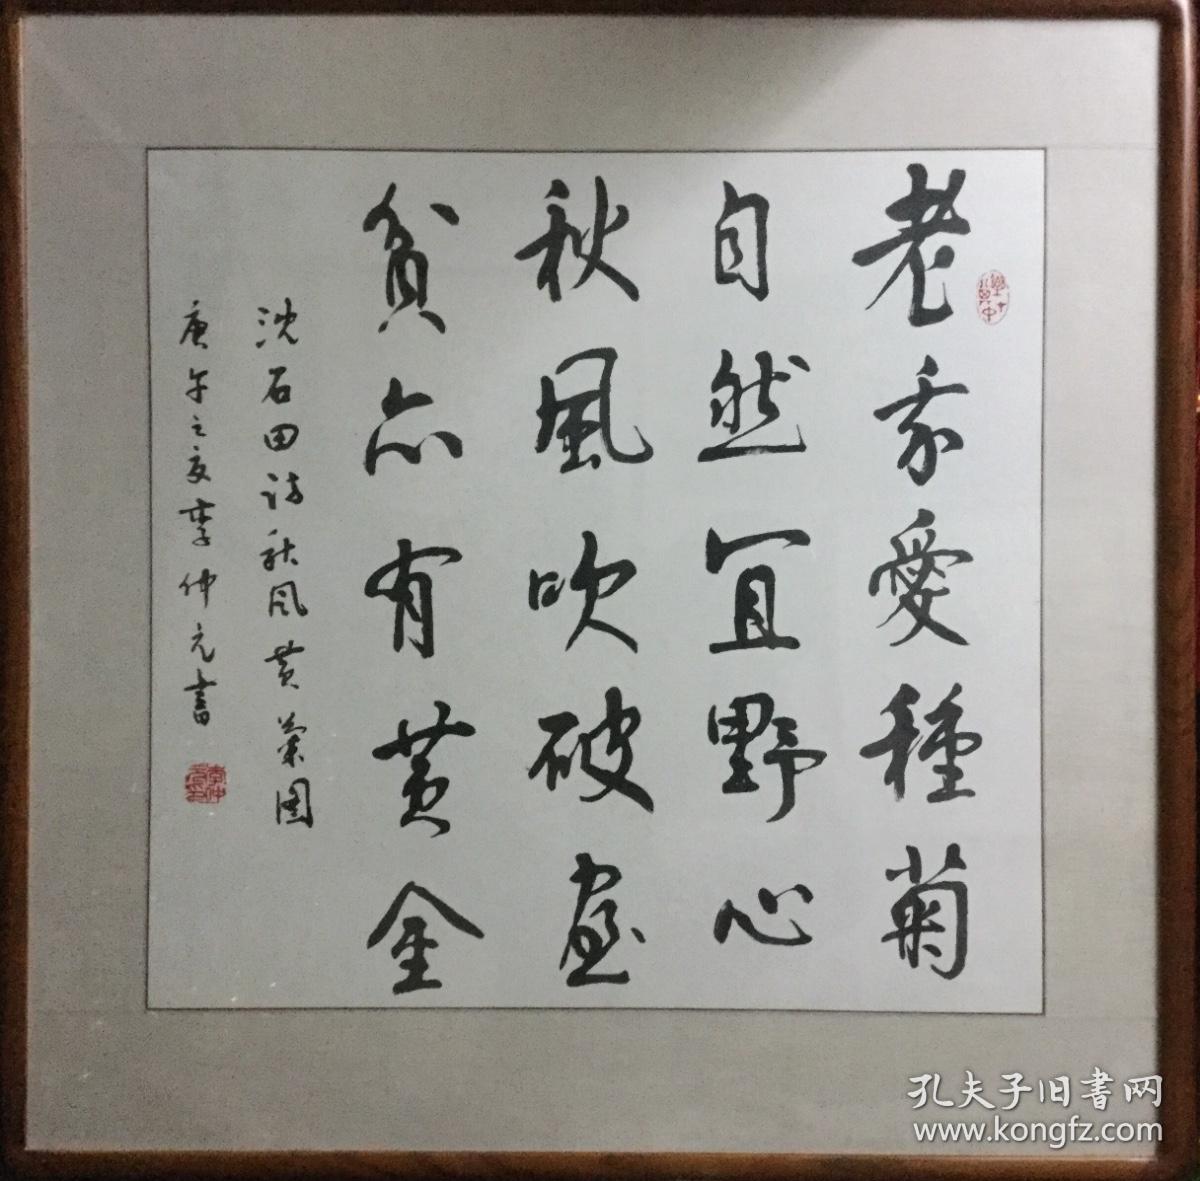 老我愛種菊
自然宜野心
秋風吹破
貧亦有黄金
沈石田詩秋風黄菊圖
庚午之夏李仲元書
孔夫子旧書网
www.kongfz.com